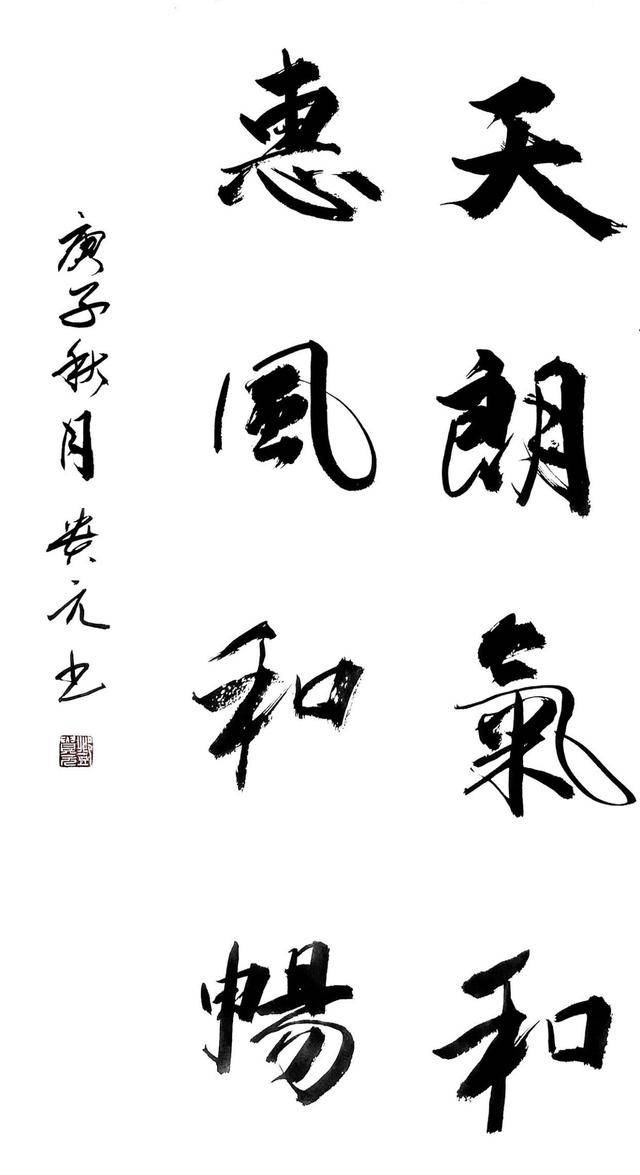 天朗氣和
惠風和暢
庚子秋月 贵元书